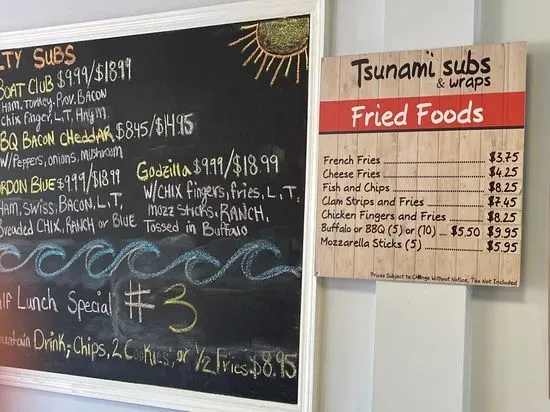 LTY SUBS
BOAT CLUB $9.99/$18.99
HAM, TURKEY, Prov. BACON
chix finger, L,T,
BBQ BACON CHEDDAR $8.45/$14.95
w/Peppers, onions, mushroom
CORDON BLUE $9.99/$18.99
HAM, Swiss, BACON, L,T,
Breaded CHIX, RANCH or BLUE
Godzilla $9.99/$18.99
W/CHIX fingers, fries, L, T,
mozz Sticks, RANCH,
Tossed in Buffalo
alf Lunch Special #3
ountain Drink, Chips, 2 Cookies, or 1/2 Fries $8.95
Tsunami subs
& wraps
Fried Foods
French Fries $3.75
Cheese Fries $4.25
Fish and Chips $8.25
Clam Strips and Fries $7.45
Chicken Fingers and Fries $8.25
Buffalo or BBQ (5) or (10) ... $5.50 $9.95
Mozzarella Sticks (5) $5.95
Prices Subject to Change Without Notice, Tax Not Included